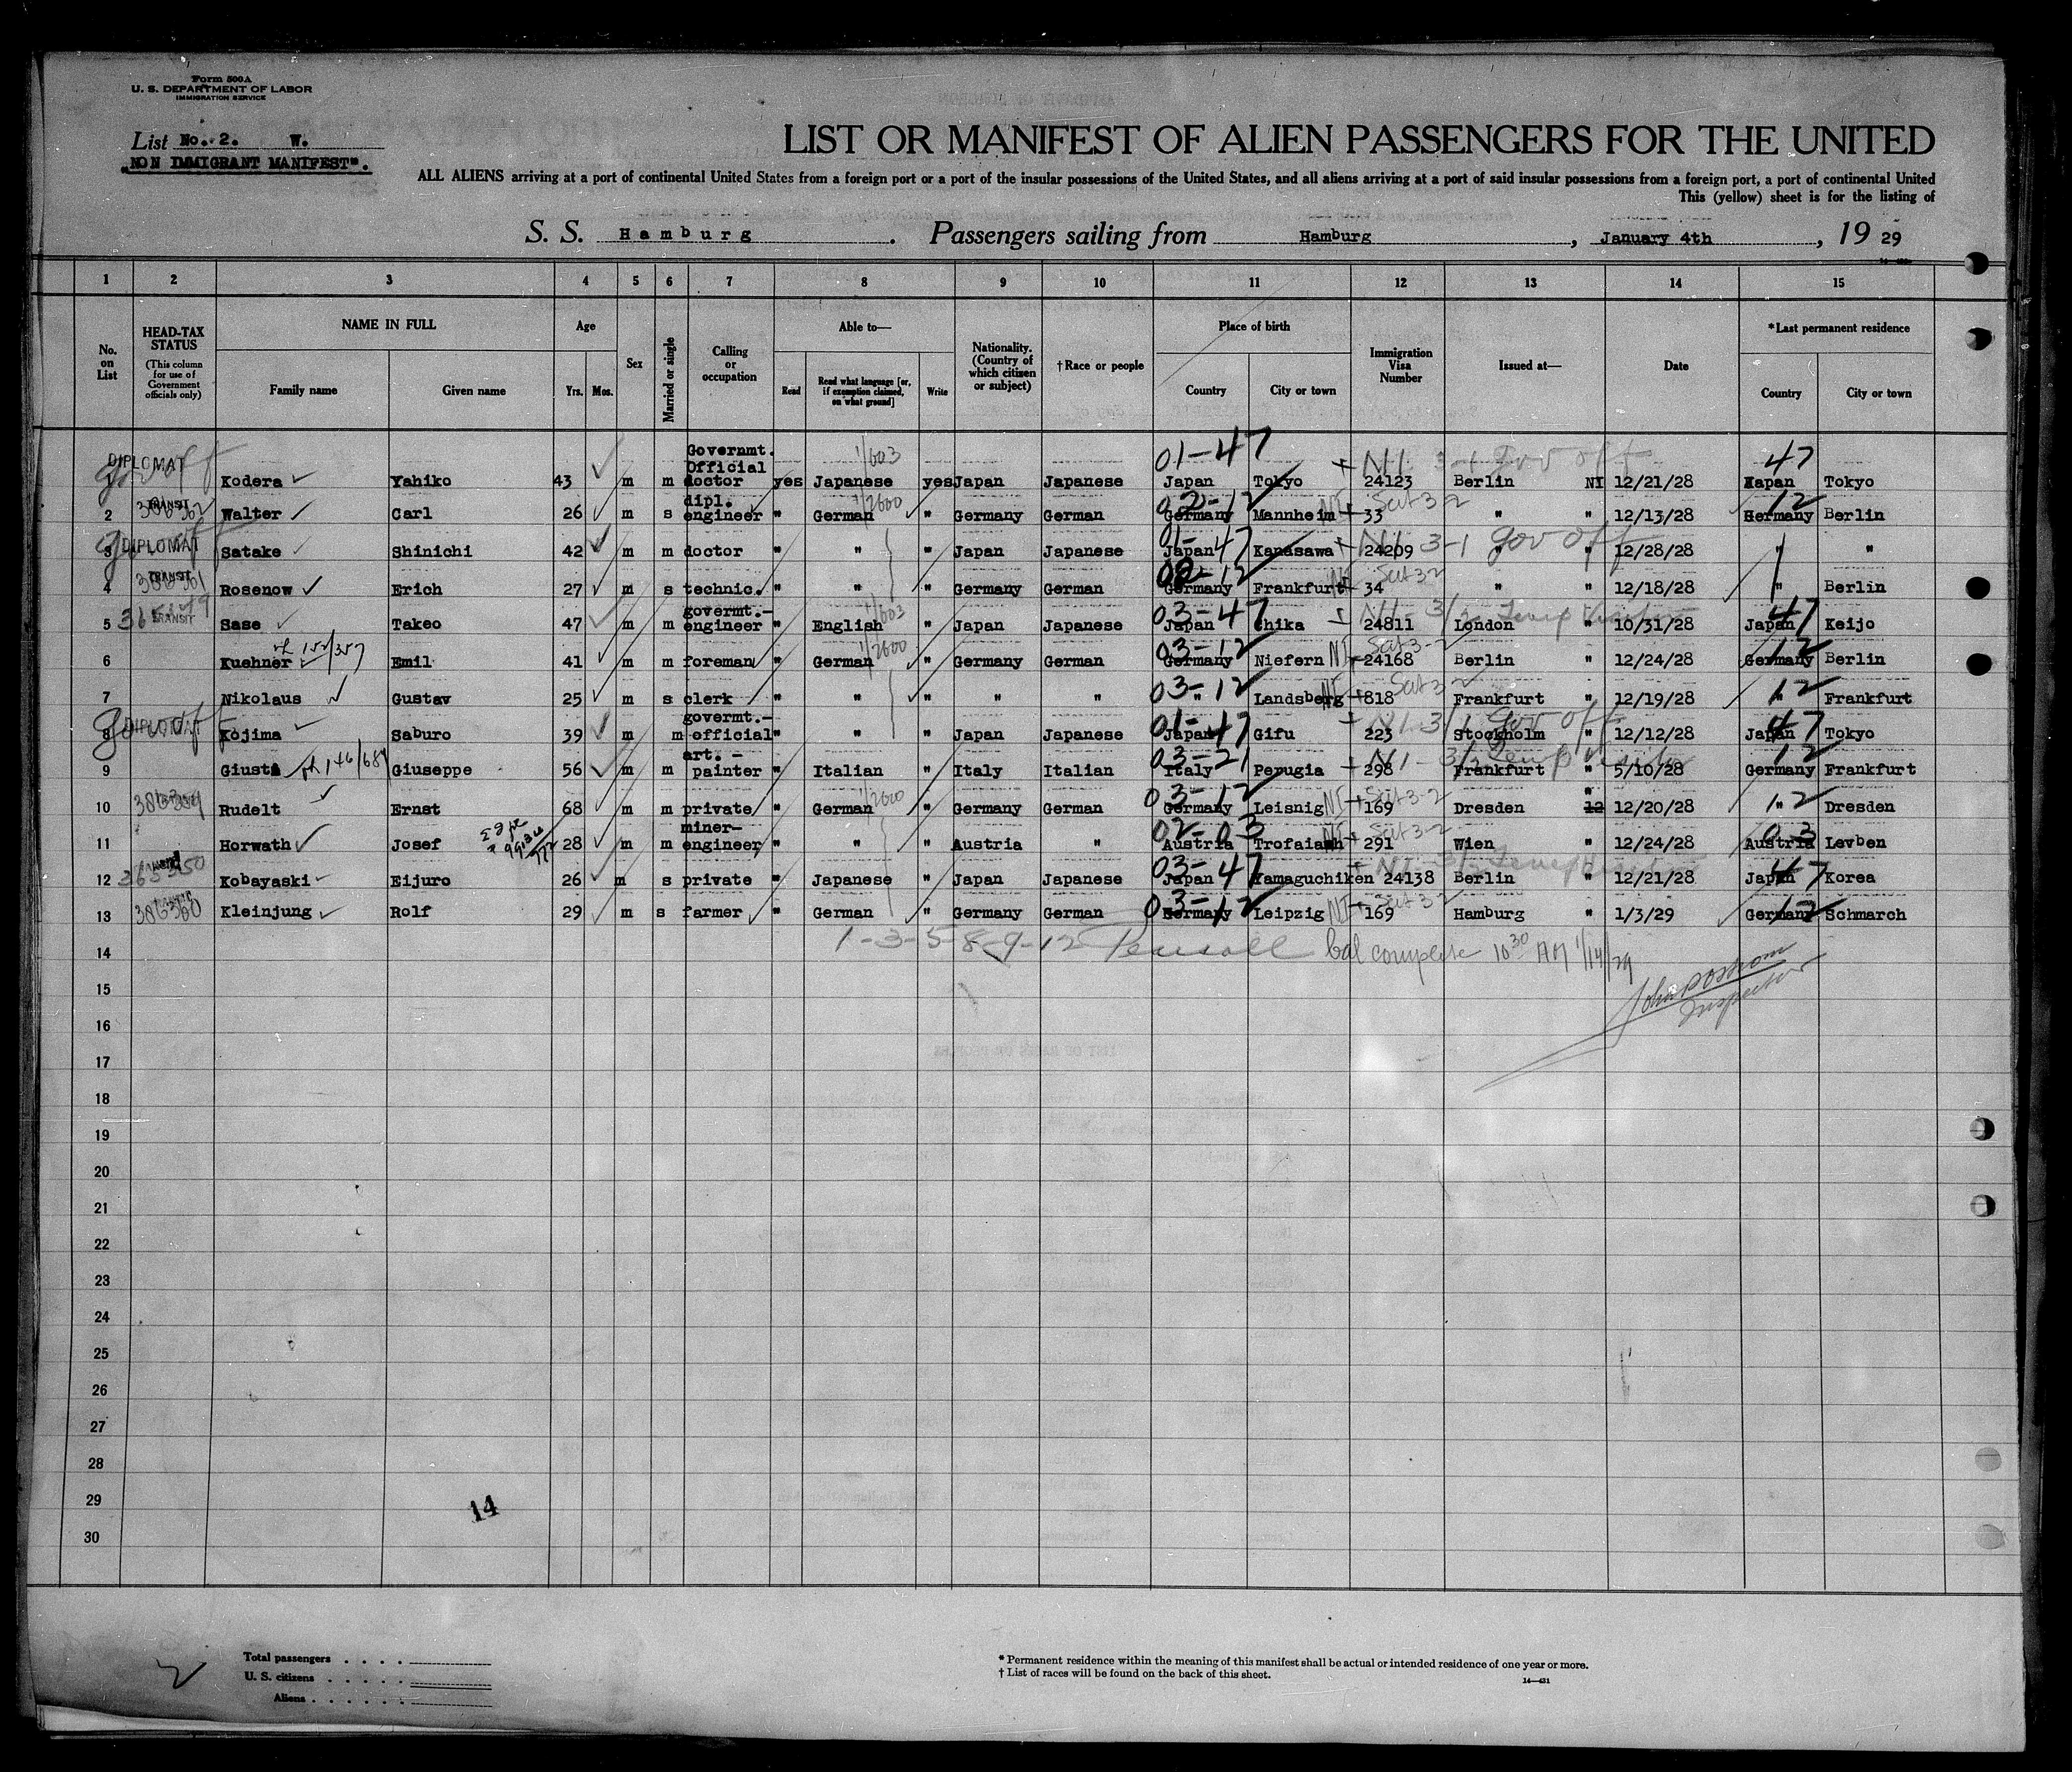 Form 500A
U. S. DEPARTMENT OF LABOR
IMMIGRATION SERVICE
List No. 2. W.
"NON IMMIGRANT MANIFEST".
LIST OR MANIFEST OF ALIEN PASSENGERS FOR THE UNITED
ALL ALIENS arriving at a port of continental United States from a foreign port or a port of the insular possessions of the United States, and all aliens arriving at a port of said insular possessions from a foreign port, a port of continental United
This (yellow) sheet is for the listing of
S. S. Hamburg. Passengers sailing from Hamburg, January 4th, 19 29
1 2 3 4 5 6 7 8 9 10 11 12 13 14 15
No. on List
HEAD-TAX STATUS (This column for use of Government officials only)
NAME IN FULL Family name Given name
Age Yrs. Mos.
Sex
Married or single
Calling or occupation
Able to— Read Read what language [or, if exemption claimed, on what ground] Write
Nationality. (Country of which citizen or subject)
† Race or people
Place of birth Country City or town
Immigration Visa Number
Issued at—
Date
*Last permanent residence Country City or town
1 DIPLOMAT gov off Kodera Yahiko 43 m m Governmt. Official doctor yes Japanese 1/603 yes Japan Japanese 01-47 Japan Tokyo NI 3-1 gov off 24123 Berlin NI 12/21/28 47 Japan Tokyo
2 TRANSIT Walter Carl 26 m s dipl. engineer " German 1/2600 " Germany German Germany Mannheim 33 " " 12/13/28 12 Germany Berlin
3 DIPLOMAT Satake Shinichi 42 m m doctor " " " Japan Japanese 01-47 Japan Kanasawa NI 3-1 gov off 24209 " " 12/28/28 " "
4 TRANSIT Rosenow Erich 27 m s technic. " " " Germany German 02-12 Germany Frankfurt 34 " " 12/18/28 " Berlin
5 TRANSIT Sase Takeo 47 m m govermt.- engineer " English 1/603 " Japan Japanese 03-47 Japan Chika 24811 London " 10/31/28 47 Japan Keijo
6 Kuehner Emil 41 m m foreman " German 1/2600 " Germany German 03-12 Germany Niefern NI 24168 Berlin " 12/24/28 12 Germany Berlin
7 Nikolaus Gustav 25 m s clerk " " " " " 03-12 " Landsberg 818 Frankfurt " 12/19/28 12 " Frankfurt
8 DIPLOMAT Kojima Saburo 39 m m govermt.- official " " " Japan Japanese 01-47 Japan Gifu NI 3/1 gov off 223 Stockholm " 12/12/28 47 Japan Tokyo
9 Giusta Giuseppe 56 m m art. - painter " Italian " Italy Italian 03-21 Italy Perugia 298 Frankfurt " 5/10/28 12 Germany Frankfurt
10 Rudelt Ernst 68 m m private " German 1/2600 " Germany German 03-12 Germany Leisnig NI 169 Dresden 12 " 12/20/28 12 " Dresden
11 Horwath Josef 28 m m miner- engineer " " " Austria " 02-03 Austria Trofaiach 291 Wien " 12/24/28 03 Austria Levben
12 Kobayaski Eijuro 26 m s private " Japanese " Japan Japanese 03-47 Japan Yamaguchiken 24138 Berlin " 12/21/28 47 Japan Korea
13 Kleinjung Rolf 29 m s farmer " German " Germany German 03-12 Germany Leipzig NI 169 Hamburg " 1/3/29 12 Germany Schmarch
14 1-3-5-8-9-12 bal complete 10 30 AM 1/14/29
15
Inspector
16
17
18
19
20
21
22
23
24
25
26
27
28
29
14
30
Total passengers . . . .
U. S. citizens . . . . .
Aliens . . . . . . .
* Permanent residence within the meaning of this manifest shall be actual or intended residence of one year or more.
† List of races will be found on the back of this sheet.
14—431